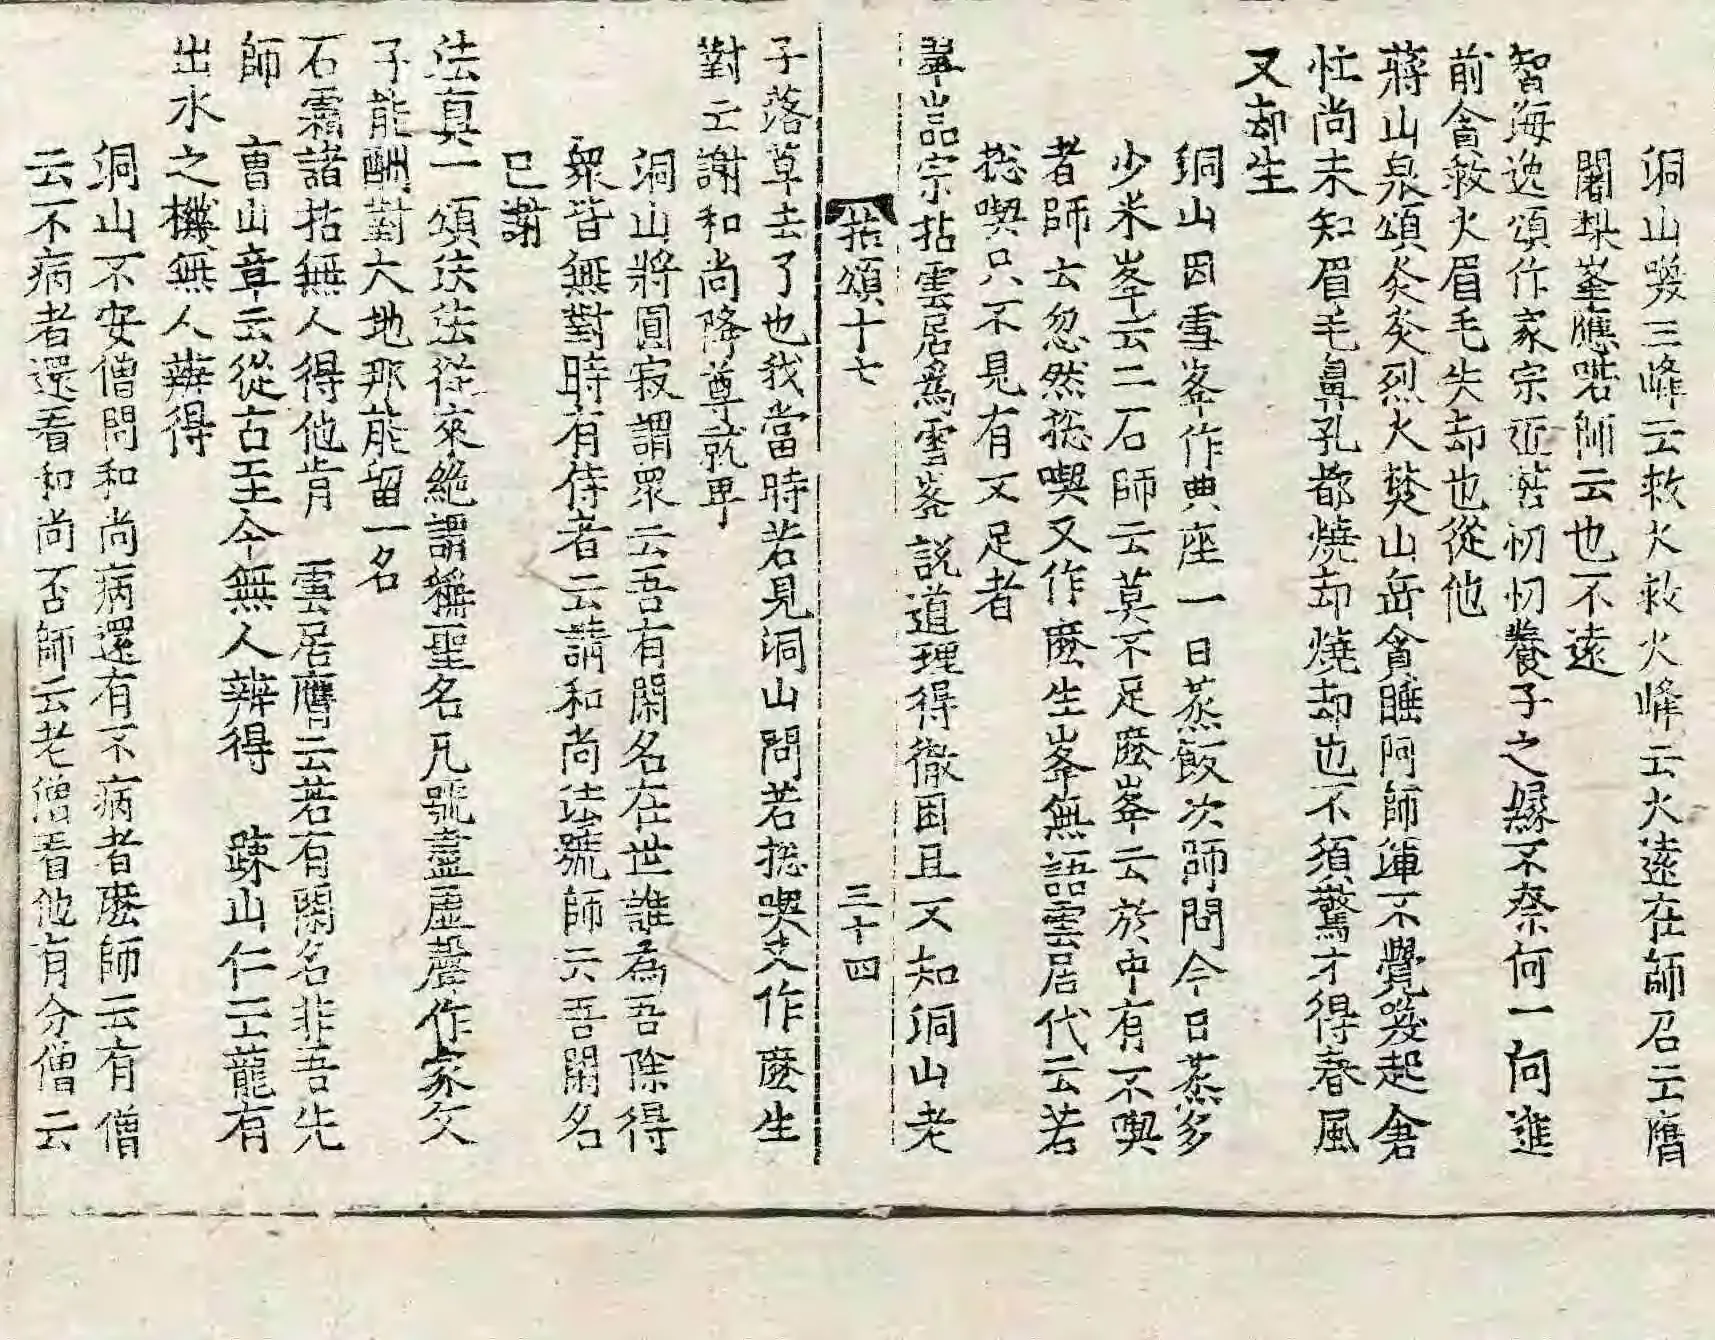 洞山喚三峰云救火救火峰云火遠在師召云膺
闍梨峯應喏師云也不遠
智海逸頌作家宗匠苦忉忉養子之緣不柰何一向進
前貪救火眉毛失却也從他
蔣山泉頌炎炎烈火焚山岳貪睡阿師渾不覺喚起倉
忙尚未知眉毛鼻孔都燒却燒却也不須驚才得春風
又却生
洞山因雪峯作典座一日蒸飯次師問今日蒸多
少米峯云二石師云莫不足麽峯云於中有不喫
者師云忽然捴喫又作麽生峯無語雲居代云若
捴喫只不見有不足者
翠嵓宗拈雲居爲雪峯說道理得徹困且不知洞山老
拈頌十七 三十四
子落草去了也我當時若見洞山問若捴喫又作麽生
對云謝和尚降尊就卑
洞山將圓寂謂眾云吾有閑名在世誰為吾除得
衆皆無對時有侍者云請和尚法號師云吾閑名
已謝
法真一頌法法從來絶謂稱聖名凡號盡虛聲作家父
子能酬對大地那能留一名
石霜諸拈無人得他肯 雲居膺云若有閑名非吾先
師 曹山章云從古至今無人辨得 踈山仁云龍有
出水之機無人辨得
洞山不安僧問和尚病還有不病者麽師云有僧
云不病者還看和尚否師云老僧看他有分僧云